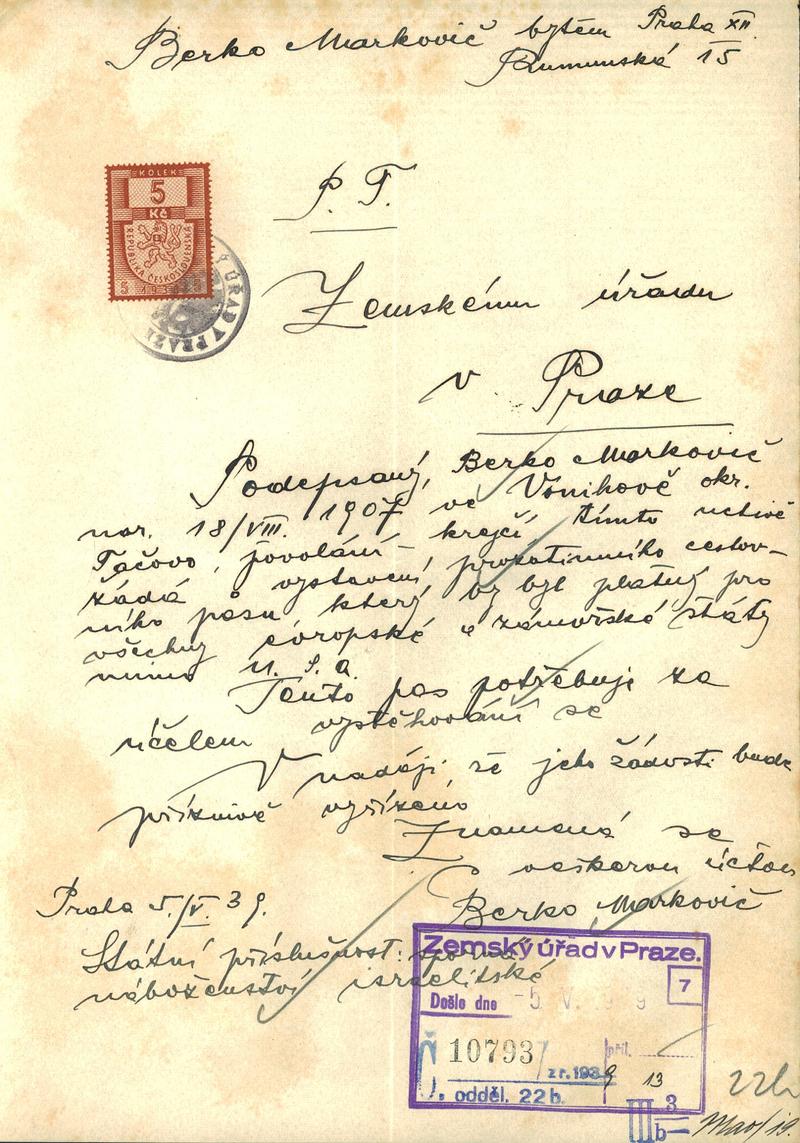 Berko Markovič bytem Praha XII.
Rumunská 15
KOLEK
5
Kč
REPUBLIKA ČESKOSLOVENSKÁ
5
ÚŘAD V PRAZE
P. T.
Zemskému úřadu
v Praze
Podepsaný, Berko Markovič
nar. 18/VIII. 1907 ve Vonihově okr.
Tačovo, povolání – krejčí, tímto uctivě
žádá o vystavení prozatimního cestov-
ního pasu který by byl platný pro
všechny evropské a zámořské státy
mimo U. S. A.
Tento pas potřebuje za
účelem vystěhování se
V naději, že jeho žádosti bude
příznivě vyřízeno
Znamená se
veškerou úctou
Berko Markovič
Praha 5./V. 39.
Státní příslušnost: sporná
náboženství israelitské
Zemský úřad v Praze.
7
Došlo dne -5. V. 1939
Č 10793/ příl.
z r. 1939 13
odděl. 22 b.
22b
III 3
b